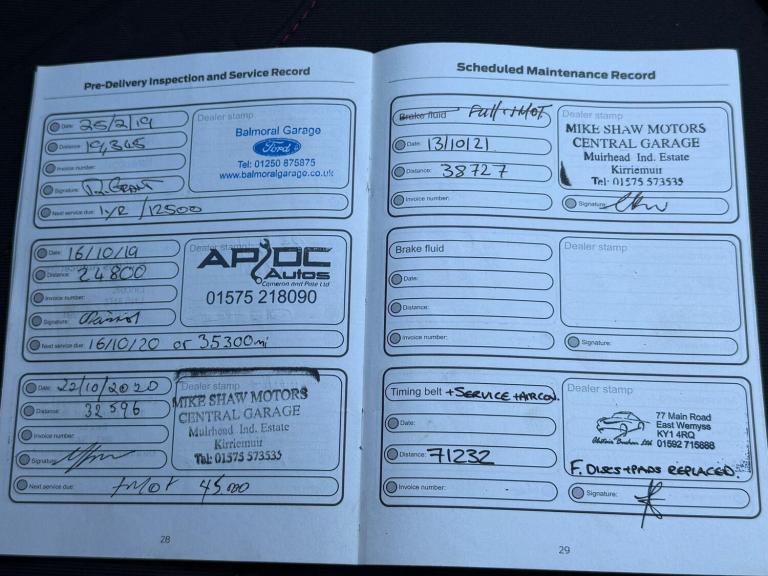 Pre-Delivery Inspection and Service Record
Date: 25/2/19
Distance: 19,345
Invoice number:
Signature:
Next service due: 1 YR / 12500
Dealer stamp
Balmoral Garage
Ford
Tel: 01250 875875
www.balmoralgarage.co.uk
Date: 16/10/19
Distance: 24800
Invoice number:
Signature:
Next service due: 16/10/20 or 35300mi
Dealer stamp
AP DC
Autos
Cameron and Pate Ltd
01575 218090
Date: 22/10/2020
Distance: 32596
Invoice number:
Signature:
Next service due: + MOT 45000
Dealer stamp
MIKE SHAW MOTORS
CENTRAL GARAGE
Muirhead Ind. Estate
Kirriemuir
Tel: 01575 573535
28
Scheduled Maintenance Record
Brake fluid Full + MOT
Date: 13/10/21
Distance: 38727
Invoice number:
Dealer stamp
MIKE SHAW MOTORS
CENTRAL GARAGE
Muirhead Ind. Estate
Kirriemuir
Tel: 01575 573535
Signature:
Brake fluid
Date:
Distance:
Invoice number:
Dealer stamp
Signature:
Timing belt + SERVICE + AIRCON.
Date:
Distance: 71232
Invoice number:
Dealer stamp
77 Main Road
East Wemyss
KY1 4RQ
01592 715888
F. DISCS + PADS REPLACED.
Signature:
29